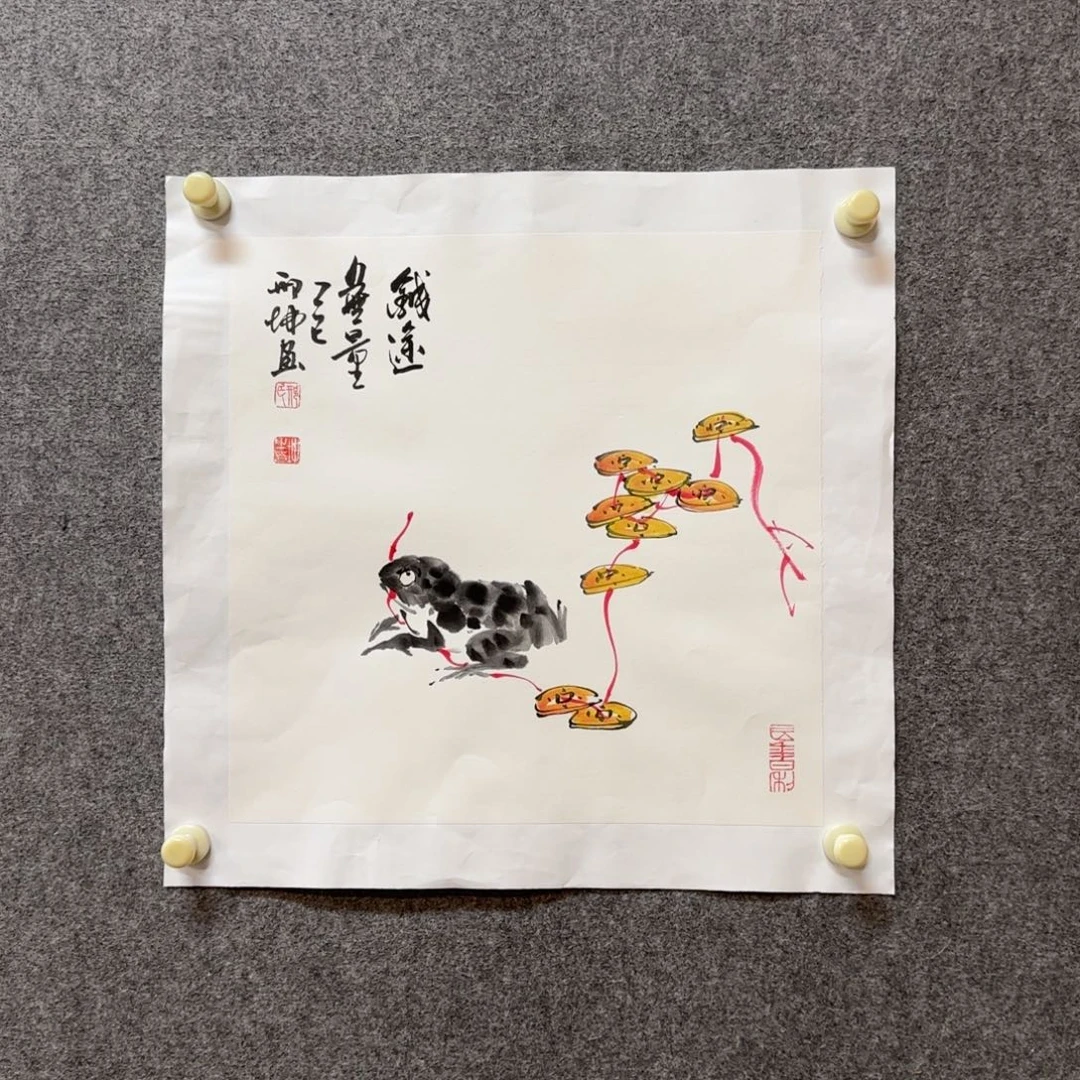 錢途
無量
乙巳
雨坤画